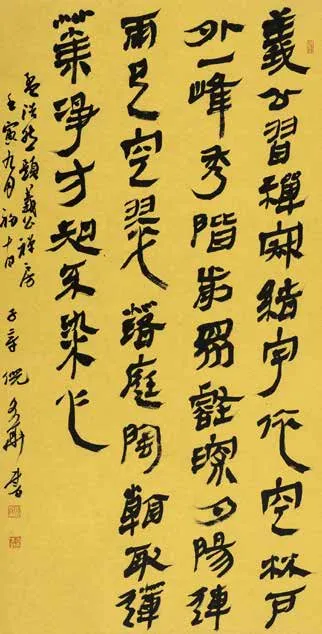 義公習禪寂結宇依空林戶
外一峰秀階前眾壑深夕陽連
雨足空翠落庭陰看取蓮
華淨方知不染心
孟浩然題義公禪房
壬寅九月初十日
倪文東書